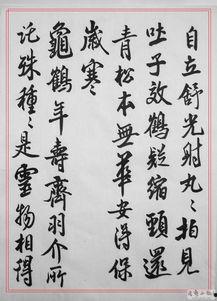 自立舒光射丸丸拍見
吐子效鶴髮縮頸還
青松本無華安得保
歲寒
龜鶴年壽齊羽介所
託殊種種是靈物相得